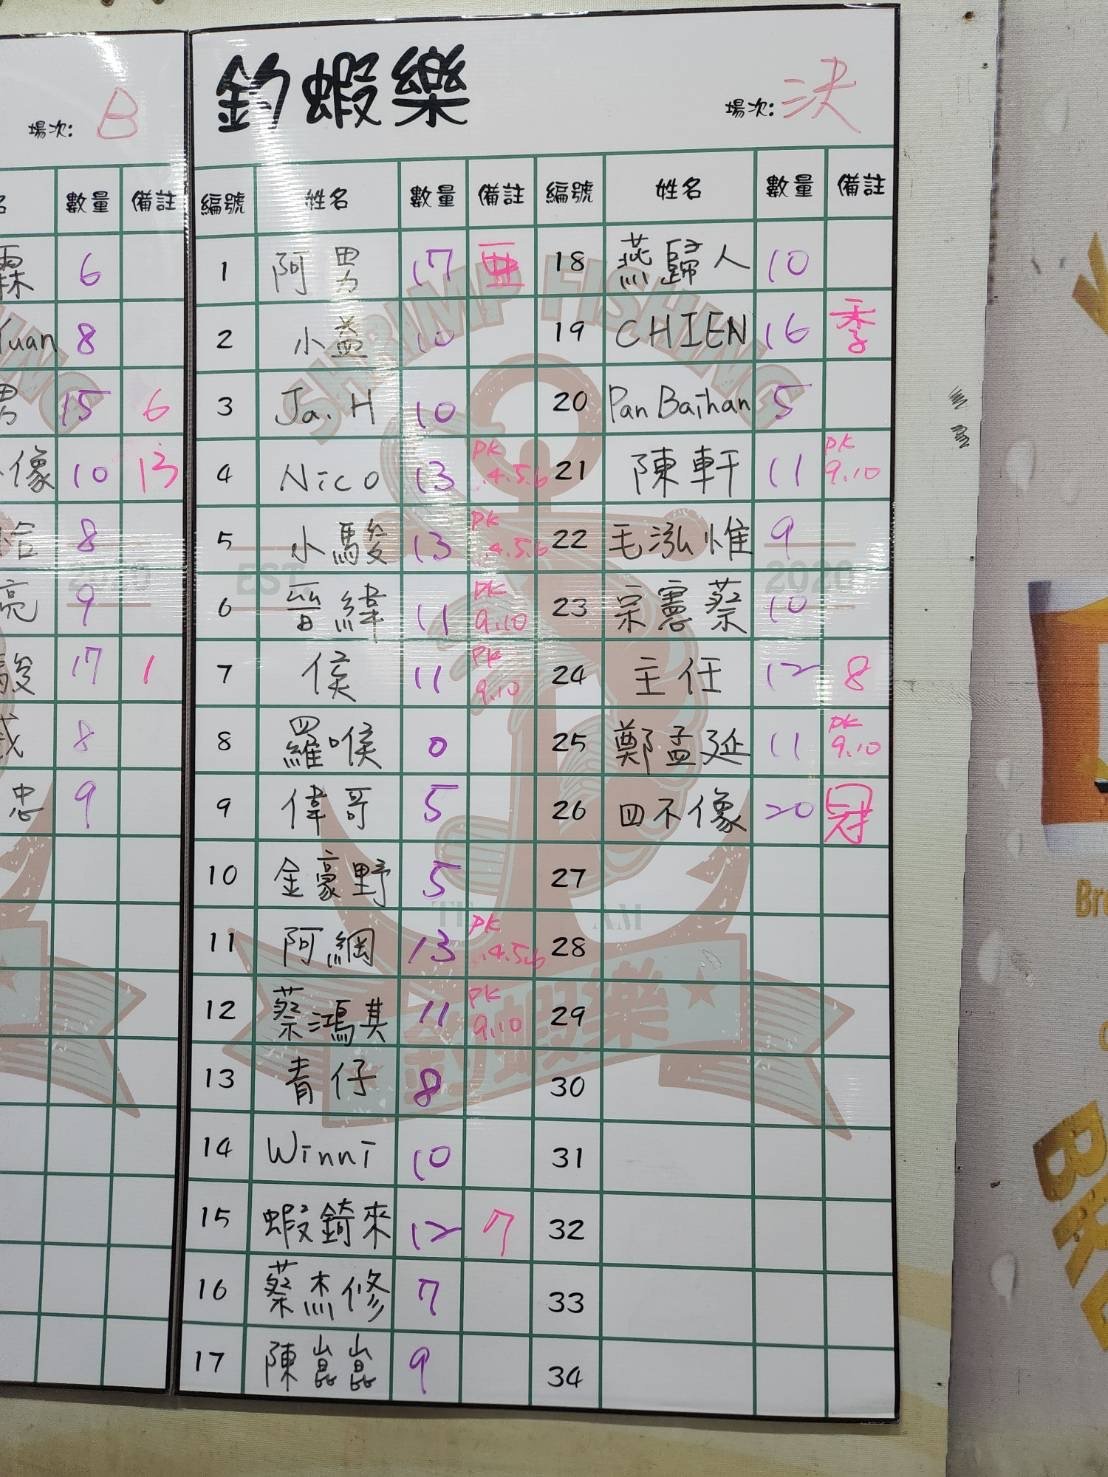 場次: B
數量 備註
霖 6
Yuan 8
男 15 6
像 10 13
8
亮 9
駿 17 1
8
忠 9
釣蝦樂
場次: 決
編號 姓名 數量 備註 編號 姓名 數量 備註
1 阿男 17 亞 18 燕歸人 10
2 小益 10 19 CHIEN 16 季
3 Ja.H 10 20 Pan Baihan 5
4 Nico 13 PK 4.5.6 21 陳軒 11 PK 9.10
5 小駿 13 PK 4.5.6 22 毛泓惟 9
6 晋緯 11 PK 9.10 23 蔡 10
7 侯 11 PK 9.10 24 主任 12 8
8 羅喉 0 25 鄭孟延 11 PK 9.10
9 偉哥 5 26 四不像 20 冠
10 金豪野 5 27
11 阿綱 13 PK 4.5.6 28
12 蔡鴻其 11 PK 9.10 29
13 青仔 8 30
14 Winni 10 31
15 蝦錡來 12 7 32
16 蔡杰修 7 33
17 陳崑崑 9 34
SHRIMP FISHING
EST. 2020
TEAM
釣蝦樂